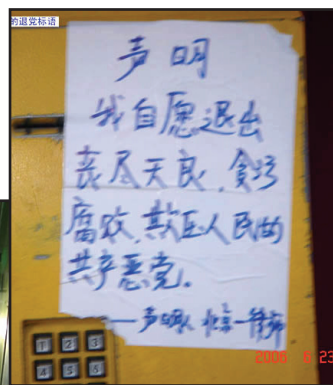 的退党标语
声明
我自愿退出
丧尽天良、贪污
腐败、欺压人民的
共产恶党。
——声明人 北京一律师
1 2 3
4 5 6
2006 6 23